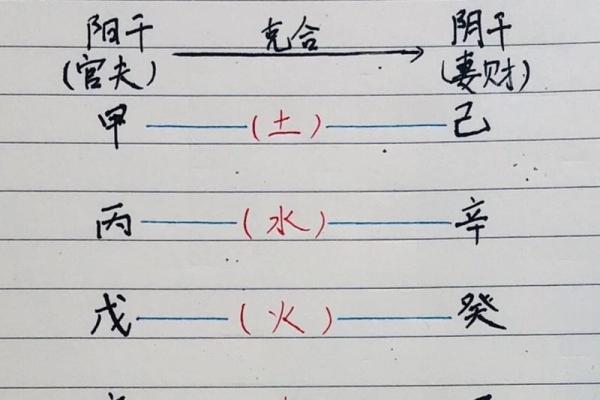 阳干 克合 阴干
(官夫) (妻财)
甲 (土) 己
丙 (水) 辛
戊 (火) 癸